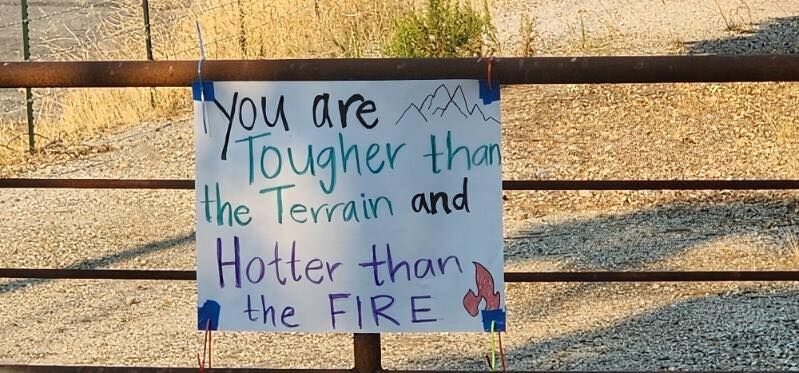 you are
Tougher than
the Terrain and
Hotter than
the FIRE